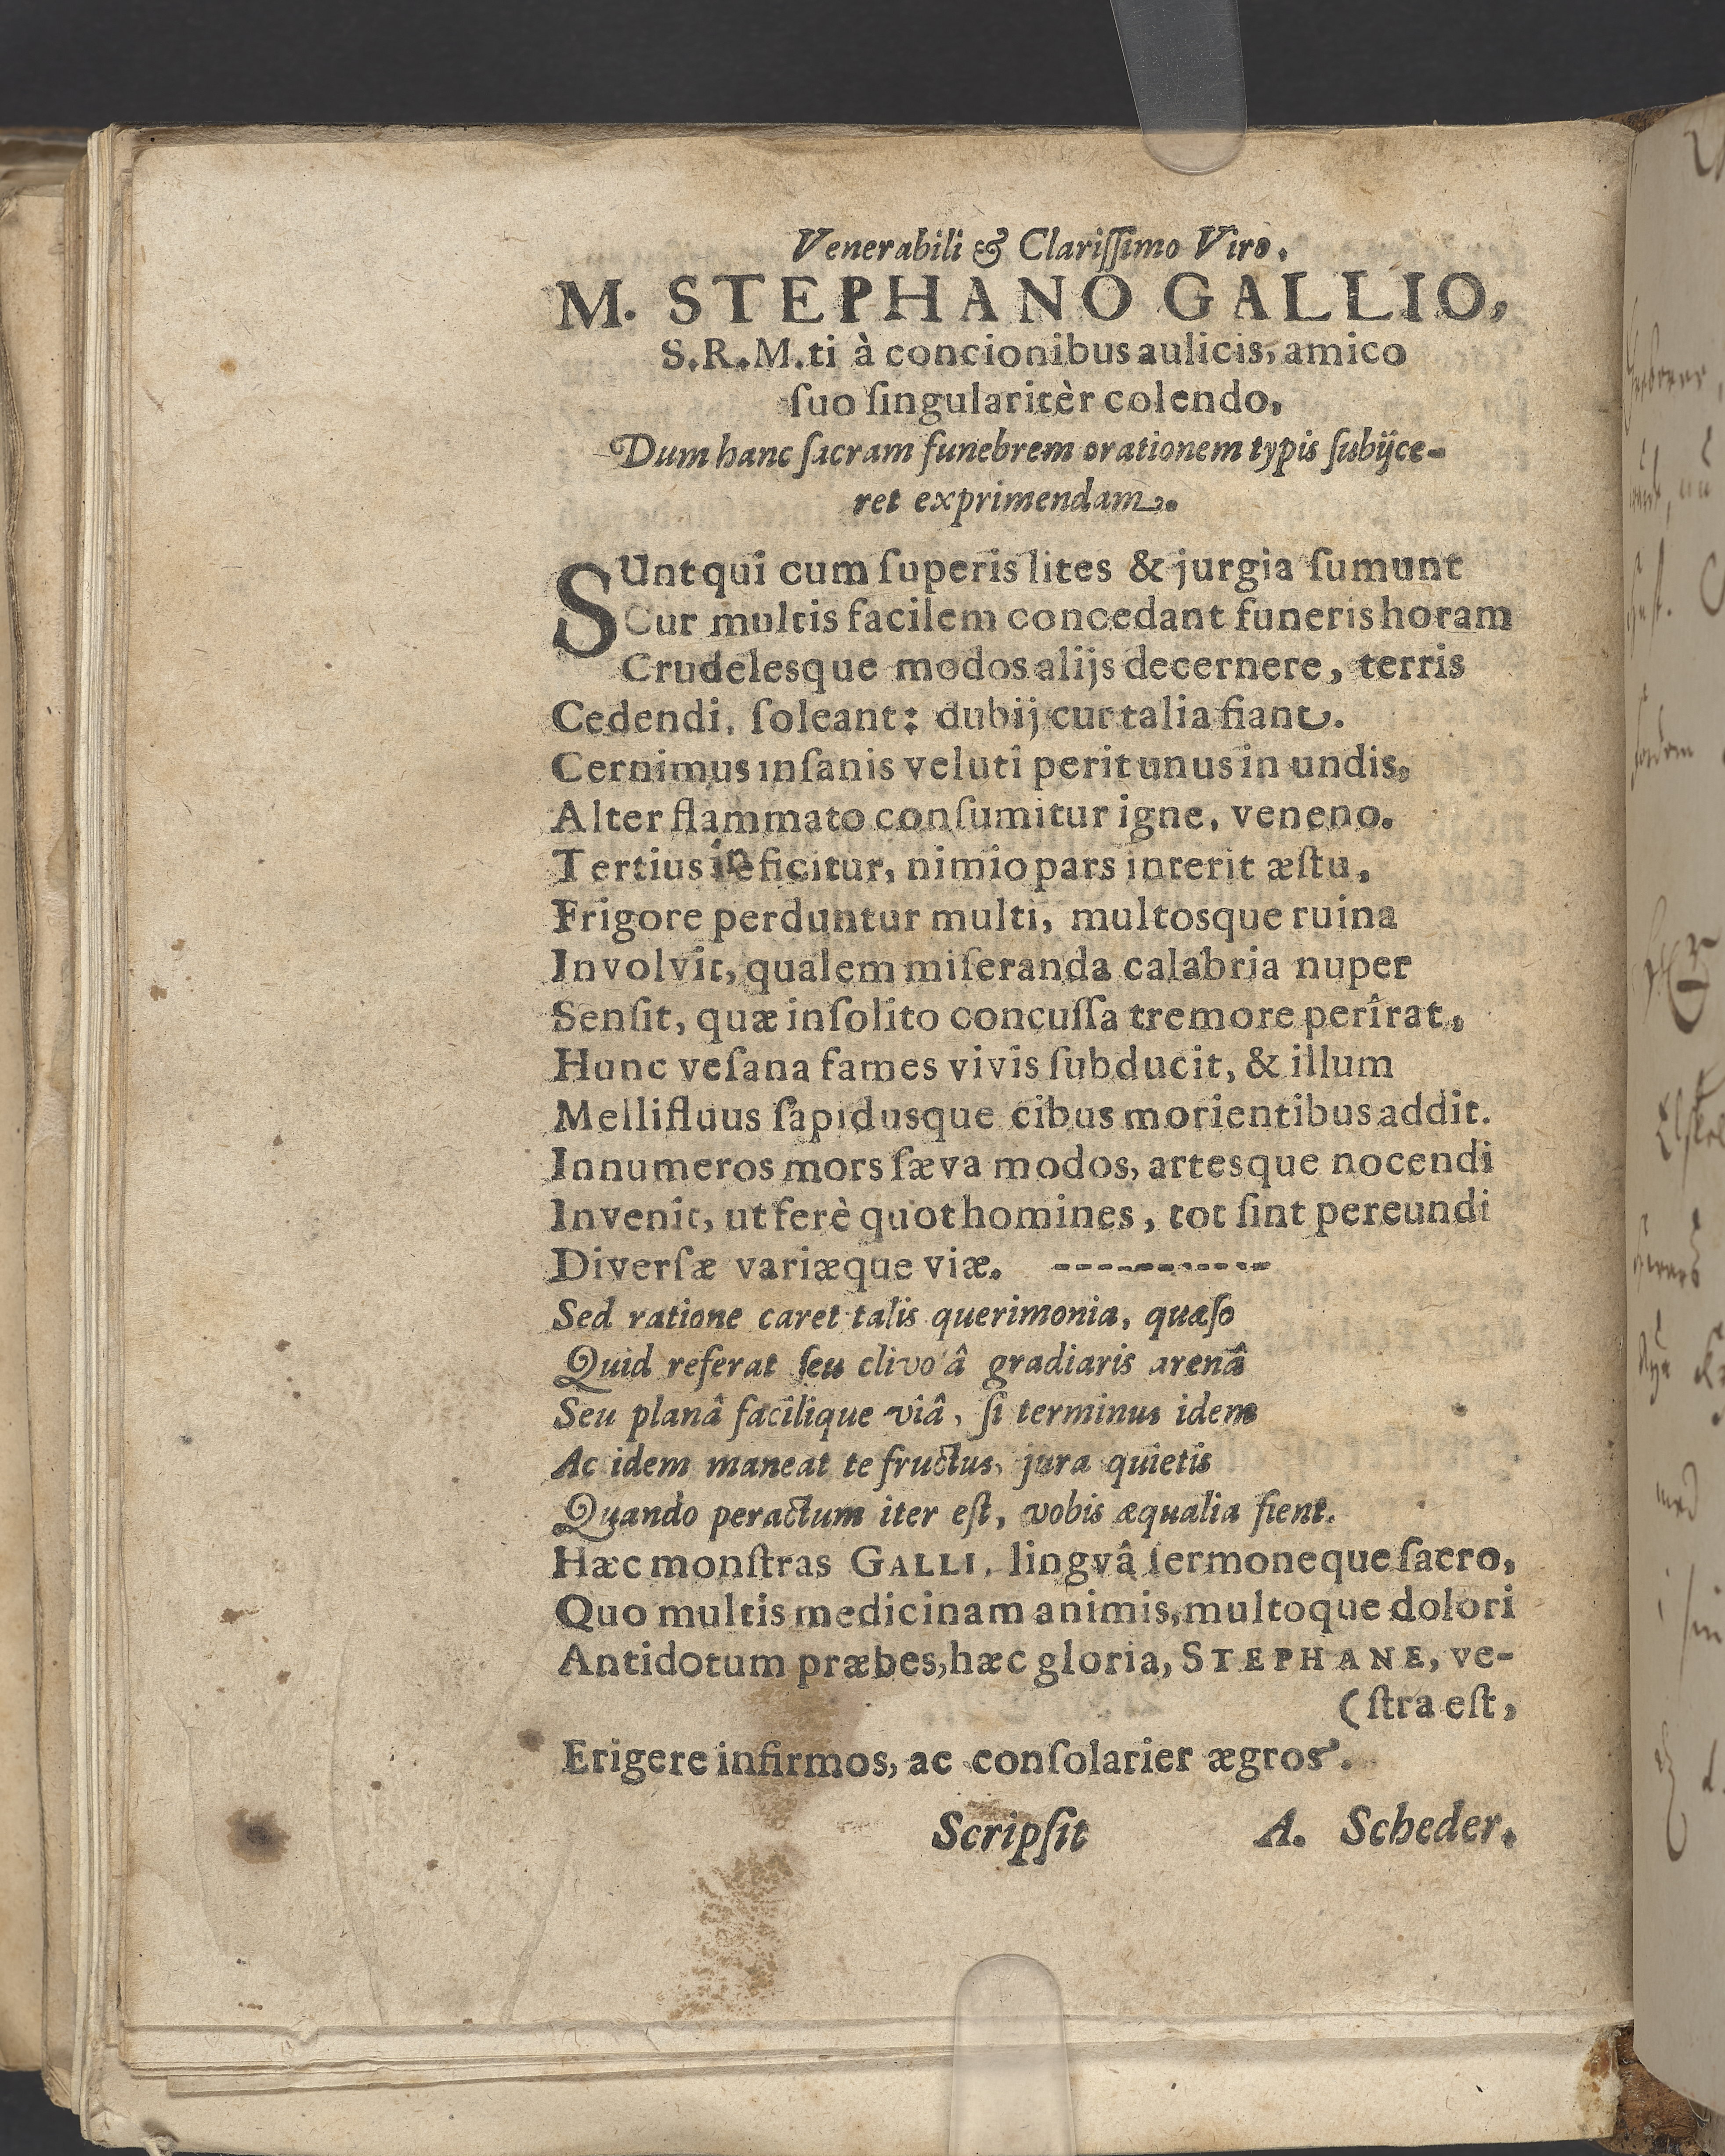 Venerabili & Clariſſimo Viro,
M. STEPHANO GALLIO,
S.R.M.ti à concionibus aulicis, amico
ſuo ſingularitèr colendo,
Dum hanc ſacram funebrem orationem typis ſubijce-
ret exprimendam.
SUnt qui cum ſuperis lites & jurgia ſumunt
Cur multis facilem concedant funeris horam
Crudelesque modos alijs decernere, terris
Cedendi, ſoleant: dubij cur talia fiant.
Cernimus inſanis velutî perit unus in undis,
Alter flammato conſumitur igne, veneno.
Tertius inficitur, nimio pars interit æſtu,
Frigore perduntur multi, multosque ruina
Involvit, qualem miſeranda calabria nuper
Senſit, quæ inſolito concuſſa tremore perîrat,
Hunc veſana fames vivis ſubducit, & illum
Mellifluus ſapidusque cibus morientibus addit.
Innumeros mors ſæva modos, artesque nocendi
Invenit, ut ferè quot homines, tot ſint pereundi
Diverſæ variæque viæ. ------------
Sed ratione caret talis querimonia, quæſo
Quid referat ſeu clivoâ gradiaris arenâ
Seu planâ facilique viâ, ſi terminus idem
Ac idem maneat te fructus, jura quietis
Quando peractum iter eſt, vobis æqualia fient.
Hæc monſtras GALLI, lingvâ ſermoneque ſacro,
Quo multis medicinam animis, multoque dolori
Antidotum præbes, hæc gloria, STEPHANE, ve-
(ſtra eſt,
Erigere infirmos, ac conſolarier ægros.
Scripſit A. Scheder.